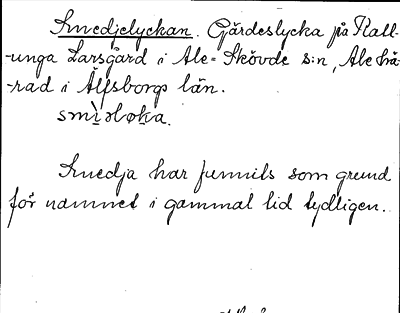 Smedjelyckan. Gärdeslycka på Rall-
-unga Larsgård i Ale-Skövde s:n, Ale hä-
-rad i Älfsborgs län.
Smedja har funnits som grund
för namnet i gammal tid tydligen.